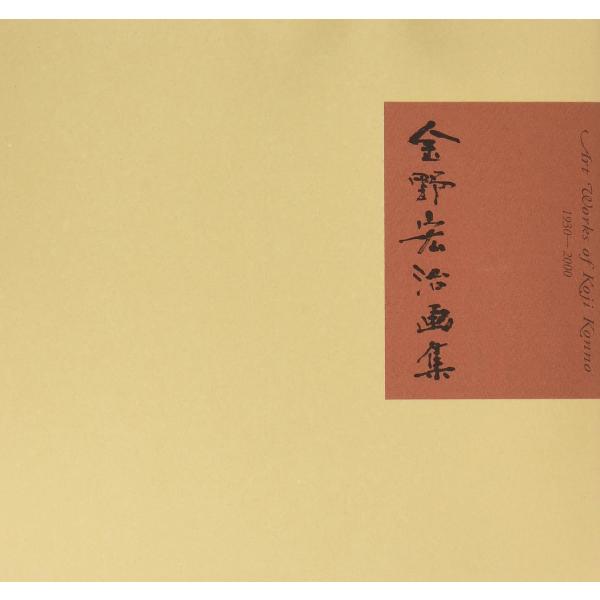 Art Works of Kōji Konno
1930—2000
金野宏治画集